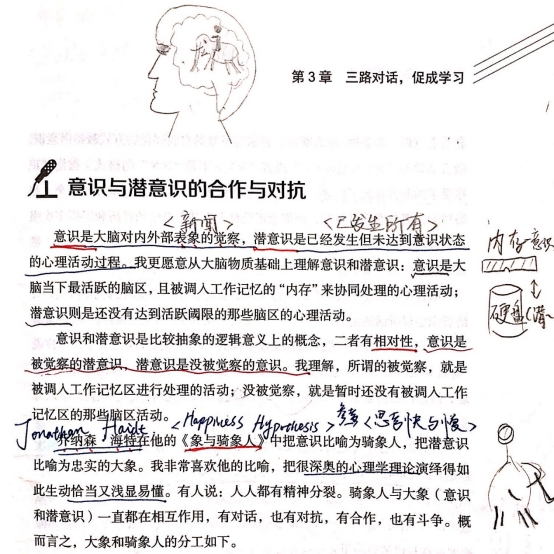 第3章 三路对话，促成学习
意识与潜意识的合作与对抗
<新闻> <已发生所有>
意识是大脑对内外部表象的觉察，潜意识是已经发生但未达到意识状态
的心理活动过程。我更愿意从大脑物质基础上理解意识和潜意识：意识是大
脑当下最活跃的脑区，且被调入工作记忆的“内存”来协同处理的心理活动；
潜意识则是还没有达到活跃阈限的那些脑区的心理活动。
内存 意识
硬盘（潜
意识和潜意识是比较抽象的逻辑意义上的概念，二者有相对性，意识是
被觉察的潜意识，潜意识是没被觉察的意识。我理解，所谓的被觉察，就是
被调入工作记忆区进行处理的活动；没被觉察，就是暂时还没有被调入工作
记忆区的那些脑区活动。
Jonathan Haidt <Happiness Hypothesis> <思考快与慢>
乔纳森·海特在他的《象与骑象人》中把意识比喻为骑象人，把潜意识
比喻为忠实的大象。我非常喜欢他的比喻，把很深奥的心理学理论演绎得如
此生动恰当又浅显易懂。有人说：人人都有精神分裂。骑象人与大象（意识
和潜意识）一直都在相互作用，有对话，也有对抗，有合作，也有斗争。概
而言之，大象和骑象人的分工如下。